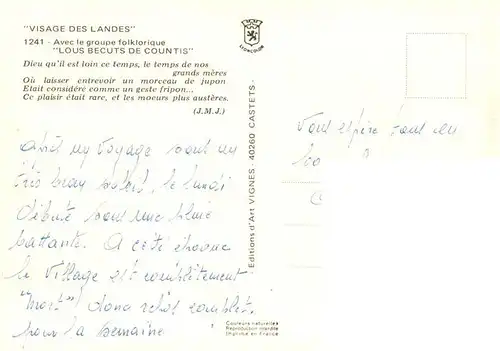 "VISAGE DES LANDES"
1241 - Avec le groupe folklorique
"LOUS BECUTS DE COUNTIS"
Dieu qu'il est loin ce temps, le temps de nos
grands mères
Où laisser entrevoir un morceau de jupon
Etait considéré comme un geste fripon...
Ce plaisir était rare, et les moeurs plus austères.
(J.M.J.)
après un voyage sous un
très beau soleil, le lundi
débute sous une pluie
battante. A cette époque
le village est complètement
"mort" donc repos complet
pour la semaine
LYONCOLOR
Editions d'Art VIGNES - 40260 CASTETS
Couleurs naturelles
Reproduction interdite
Imprimé en France
vous espère tous en